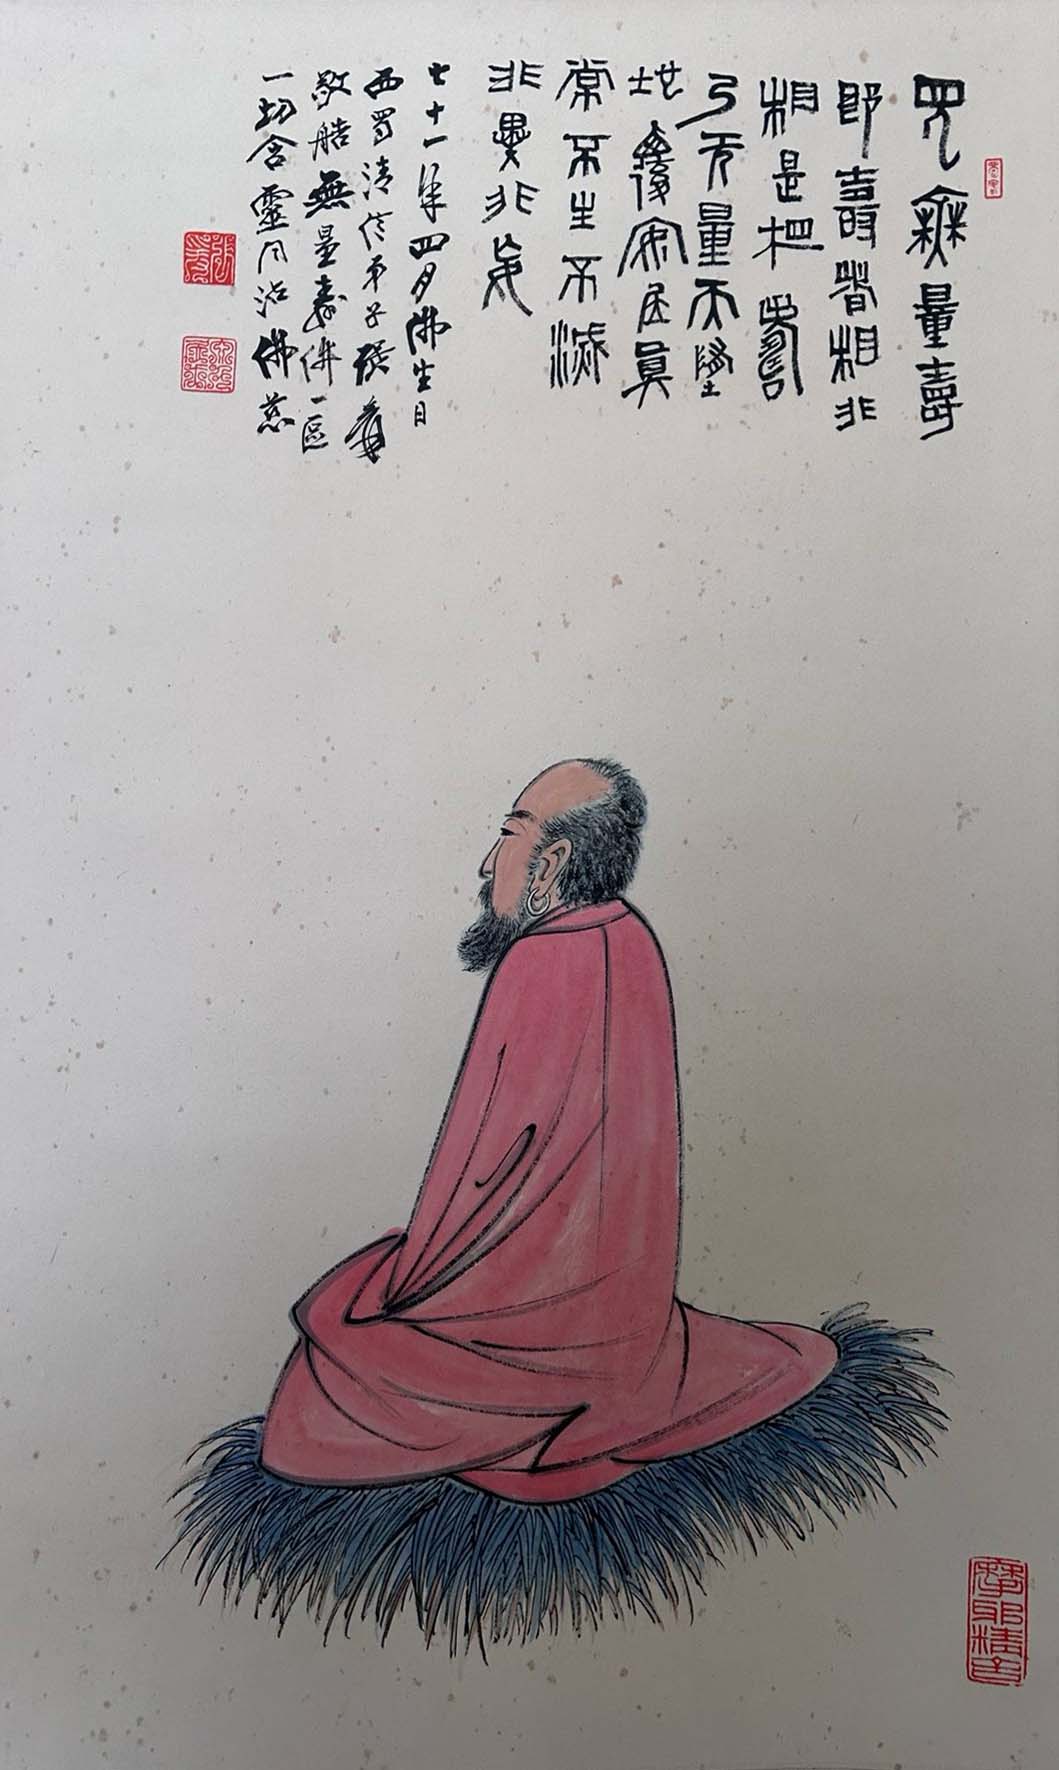 無量壽
即壽者相非
相是相
无量不墮
安居真
常不生不滅
非異非
七十一年四月佛生日
西蜀清信弟子張爰
敬造無量壽佛一區
一切含靈同沾佛慈
摩耶精舍